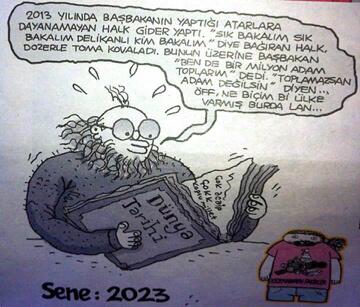 2013 YILINDA BAŞBAKANIN YAPTIĞI ATARLARA
DAYANAMAYAN HALK GİDER YAPTI. "SIK BAKALIM SIK
BAKALIM DELİKANLI KİM BAKALIM" DİYE BAĞIRAN HALK,
DOZERLE TOMA KOVALADI. BUNUN ÜZERİNE BAŞBAKAN
"BEN DE BİR MİLYON ADAM
TOPLARIM" DEDİ. "TOPLAMAZSAN
ADAM DEĞİLSİN" DİYEN...
ÖFF, NE BİÇİM Bİ ÜLKE
VARMIŞ BURDA LAN...
Dünya
Tarihi
Çok acayip
Sene: 2023